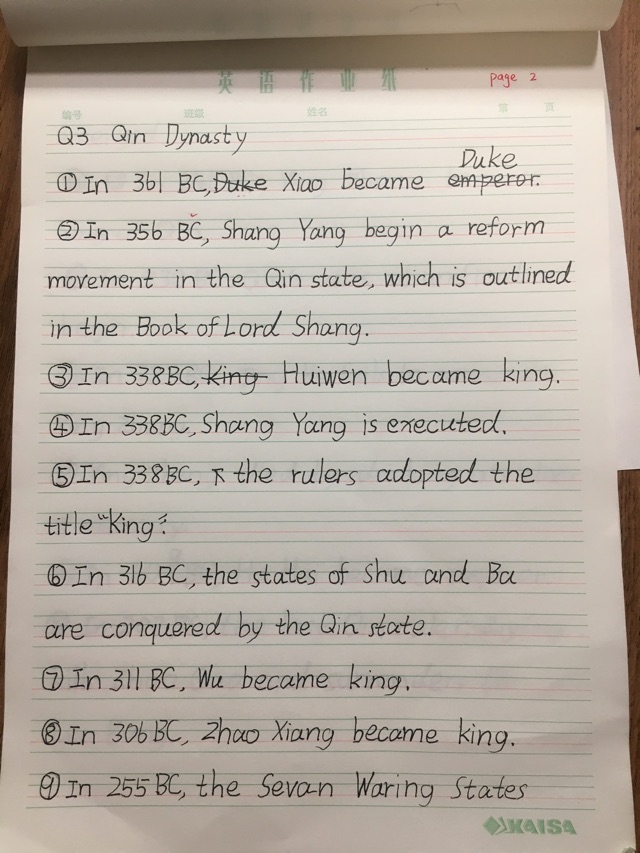 英语作业纸
page 2
编号 班级 姓名 第 页
Q3 Qin Dynasty
Duke
① In 361 BC, Duke Xiao became emperor.
② In 356 BC, Shang Yang begin a reform
movement in the Qin state, which is outlined
in the Book of Lord Shang.
③ In 338BC, King Huiwen became king.
④ In 338BC, Shang Yang is executed.
⑤ In 338BC, the rulers adopted the
title "king".
⑥ In 316 BC, the states of Shu and Ba
are conquered by the Qin state.
⑦ In 311 BC, Wu became king.
⑧ In 306 BC, Zhao Xiang became king.
⑨ In 255 BC, the Sevan Waring States
KAISA